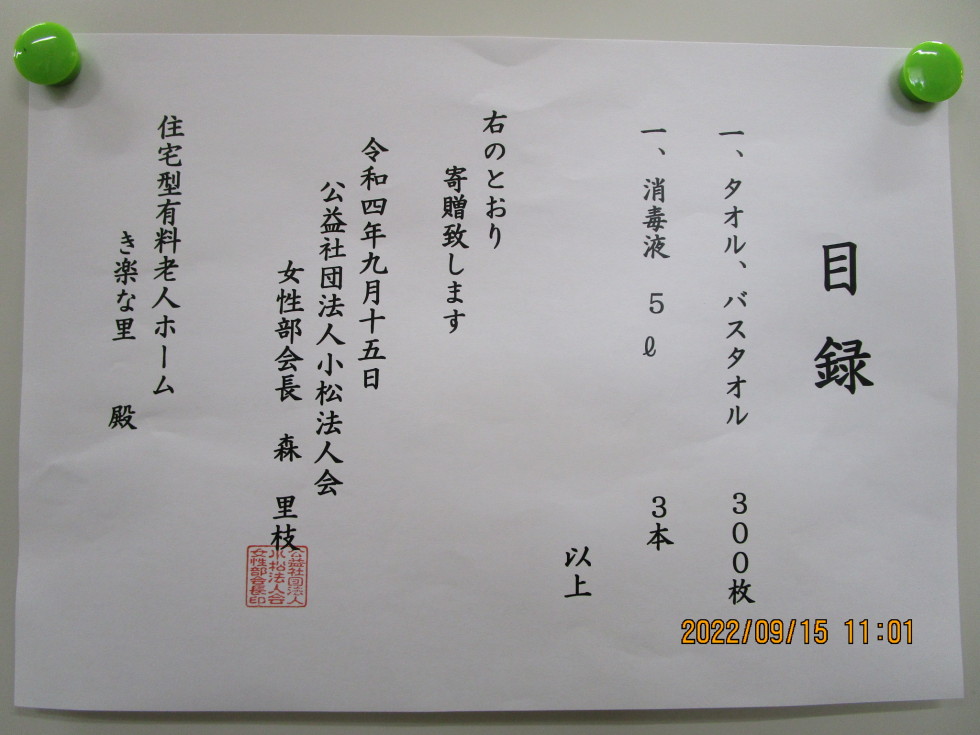 目録
一、タオル、バスタオル　３００枚
一、消毒液　５ℓ　３本
以上
右のとおり
寄贈致します
令和四年九月十五日
公益社団法人小松法人会
女性部会長　森　里枝
公益社団法人
小松法人会
女性部会長印
住宅型有料老人ホーム
き楽な里　殿
2022/09/15 11:01